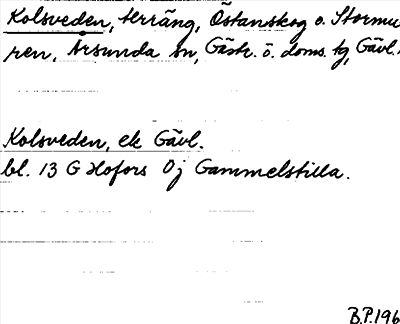 Kolsveden, terräng, Östanskog o. Stormu
ren, Årsunda sn, Gästr. ö. doms. tg, Gävl.
Kolsveden, ek Gävl.
bl. 13 G Hofors Oj Gammelstilla.
B.P.196